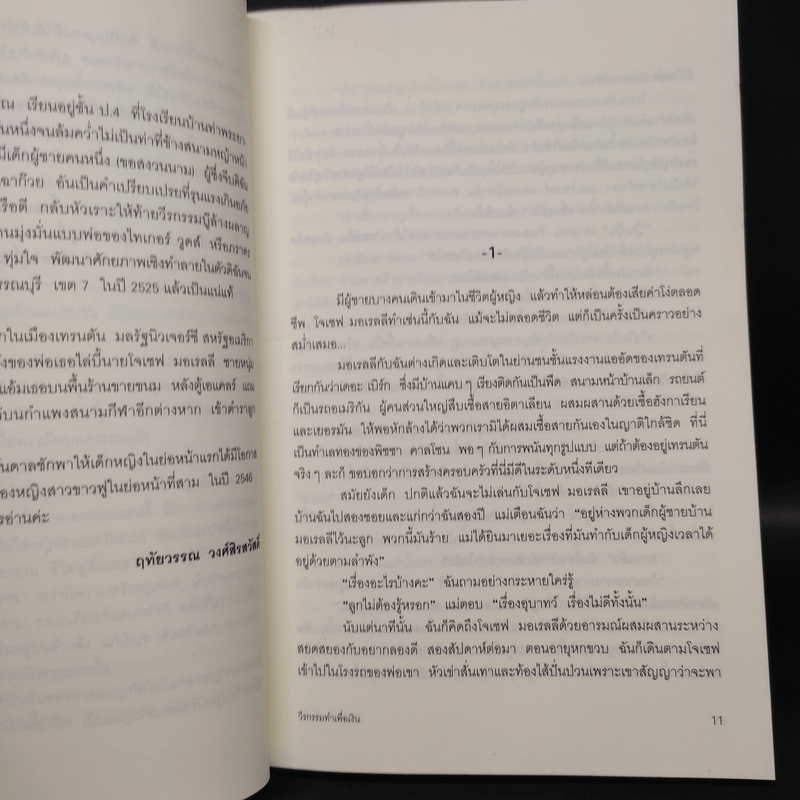 ณ เรียนอยู่ชั้น ป.4 ที่โรงเรียนบ้านท่าพระยา
นหนึ่งจนล้มคว่ำไม่เป็นท่าที่ข้างสนามหญ้าหน้า
มีเด็กผู้ชายคนหนึ่ง (ขอสงวนนาม) ผู้ซึ่งจีบดิฉัน
ฉาก๊วย อันเป็นคำเปรียบเปรยที่รุนแรงเกินอภัย
รือดี กลับหัวเราะให้ท้ายวีรกรรมบู๊ล้างผลาญ
นมุ่งมั่นแบบพ่อของไทเกอร์ วูดส์ หรือภราดร
ทุ่มใจ พัฒนาศักยภาพเชิงทำลายในตัวดิฉันจน
รรณบุรี เขต 7 ในปี 2525 แล้วเป็นแน่แท้
กในเมืองเทรนตัน มลรัฐนิวเจอร์ซี สหรัฐอเมริกา
งของพ่อเธอไล่บี้นายโจเซฟ มอเรลลี ชายหนุ่ม
แอ้มเธอบนพื้นร้านขายขนม หลังตู้เอแคลร์ แถม
บนกำแพงสนามกีฬาอีกต่างหาก เข้าตำราลูก
นดาลชักพาให้เด็กหญิงในย่อหน้าแรกได้มีโอกาส
องหญิงสาวขาวฟูในย่อหน้าที่สาม ในปี 2546
รอ่านค่ะ
ฤทัยวรรณ วงศ์สิรสวัสดิ์
-1-
มีผู้ชายบางคนเดินเข้ามาในชีวิตผู้หญิง แล้วทำให้หล่อนต้องเสียค่าโง่ตลอด
ชีพ โจเซฟ มอเรลลีทำเช่นนี้กับฉัน แม้จะไม่ตลอดชีวิต แต่ก็เป็นครั้งเป็นคราวอย่าง
สม่ำเสมอ...
มอเรลลีกับฉันต่างเกิดและเติบโตในย่านชนชั้นแรงงานแออัดของเทรนตันที่
เรียกกันว่าเดอะ เบิร์ก ซึ่งมีบ้านแคบๆ เรียงติดกันเป็นพืด สนามหน้าบ้านเล็ก รถยนต์
ก็เป็นรถอเมริกัน ผู้คนส่วนใหญ่สืบเชื้อสายอิตาเลียน ผสมผสานด้วยเชื้อฮังกาเรียน
และเยอรมัน ให้พอหักล้างได้ว่าพวกเรามิได้ผสมเชื้อสายกันเองในญาติใกล้ชิด ที่นี่
เป็นทำเลทองของพิซซา คาลโซน พอๆ กับการพนันทุกรูปแบบ แต่ถ้าต้องอยู่เทรนตัน
จริงๆ ละก็ ขอบอกว่าการสร้างครอบครัวที่นี่มีดีในระดับหนึ่งทีเดียว
สมัยยังเด็ก ปกติแล้วฉันจะไม่เล่นกับโจเซฟ มอเรลลี เขาอยู่บ้านลึกเลย
บ้านฉันไปสองซอยและแก่กว่าฉันสองปี แม่เตือนฉันว่า “อยู่ห่างพวกเด็กผู้ชายบ้าน
มอเรลลีไว้นะลูก พวกนี้มันร้าย แม่ได้ยินมาเยอะเรื่องที่มันทำกับเด็กผู้หญิงเวลาได้
อยู่ด้วยตามลำพัง”
“เรื่องอะไรบ้างคะ” ฉันถามอย่างกระหายใคร่รู้
“ลูกไม่ต้องรู้หรอก” แม่ตอบ “เรื่องอุบาทว์ เรื่องไม่ดีทั้งนั้น”
นับแต่นาทีนั้น ฉันก็คิดถึงโจเซฟ มอเรลลีด้วยอารมณ์ผสมผสานระหว่าง
สยดสยองกับอยากลองดี สองสัปดาห์ต่อมา ตอนอายุหกขวบ ฉันก็เดินตามโจเซฟ
เข้าไปในโรงรถของพ่อเขา หัวเข่าสั่นเทาและท้องไส้ปั่นป่วนเพราะเขาสัญญาว่าจะพา
วีรกรรมทำเพื่อเงิน
11